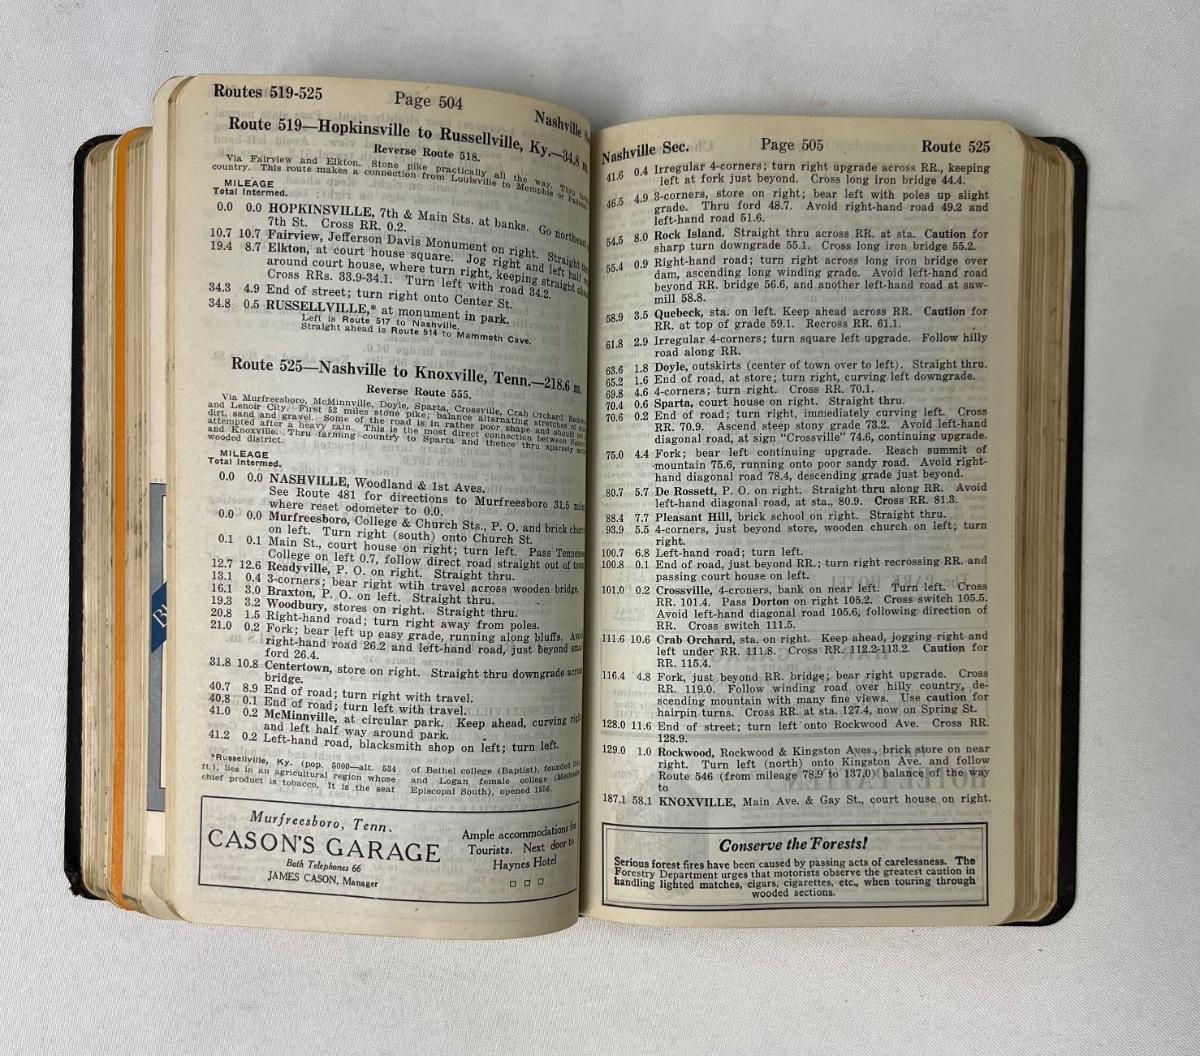 Routes 519-525 Page 504 Nashville
Route 519—Hopkinsville to Russellville, Ky.—34.8 m.
Reverse Route 518.
Via Fairview and Elkton. Stone pike practically all the way. Thru
country. This route makes a connection from Louisville to Memphis or
MILEAGE
Total Intermed.
0.0 0.0 HOPKINSVILLE, 7th & Main Sts. at banks. Go northeast
7th St. Cross RR. 0.2.
10.7 10.7 Fairview, Jefferson Davis Monument on right. Straight
19.4 8.7 Elkton, at court house square. Jog right and left half
around court house, where turn right, keeping straight
Cross RRs. 33.9-34.1. Turn left with road 34.2.
34.3 4.9 End of street; turn right onto Center St.
34.8 0.5 RUSSELLVILLE,* at monument in park.
Left is Route 517 to Nashville.
Straight ahead is Route 514 to Mammoth Cave.
Route 525—Nashville to Knoxville, Tenn.—218.6 m.
Reverse Route 555.
Via Murfreesboro, McMinnville, Doyle, Sparta, Crossville, Crab Orchard,
and Lenoir City. First 52 miles stone pike; balance alternating stretches of
dirt, sand and gravel. Some of the road is in rather poor shape and should
attempted after a heavy rain. This is the most direct connection between
and Knoxville. Thru farming country to Sparta and thence thru sparsely
wooded district.
MILEAGE
Total Intermed.
0.0 0.0 NASHVILLE, Woodland & 1st Aves.
See Route 481 for directions to Murfreesboro 31.5
where reset odometer to 0.0.
0.0 0.0 Murfreesboro, College & Church Sts., P. O. and brick
on left. Turn right (south) onto Church St.
0.1 0.1 Main St., court house on right; turn left. Pass
College on left 0.7, follow direct road straight out of
12.7 12.6 Readyville, P. O. on right. Straight thru.
13.1 0.4 3-corners; bear right wtih travel across wooden bridge.
16.1 3.0 Braxton, P. O. on left. Straight thru.
19.3 3.2 Woodbury, stores on right. Straight thru.
20.8 1.5 Right-hand road; turn right away from poles.
21.0 0.2 Fork; bear left up easy grade, running along bluffs.
right-hand road 26.2 and left-hand road, just beyond
ford 26.4.
31.8 10.8 Centertown, store on right. Straight thru downgrade
bridge.
40.7 8.9 End of road; turn right with travel.
40.8 0.1 End of road; turn left with travel.
41.0 0.2 McMinnville, at circular park. Keep ahead, curving
and left half way around park.
41.2 0.2 Left-hand road, blacksmith shop on left; turn left.
*Russellville, Ky. (pop. 5000—alt. 534
ft.), lies in an agricultural region whose
chief product is tobacco. It is the seat
of Bethel college (Baptist), founded
and Logan female college
Episcopal South), opened 1856.
Murfreesboro, Tenn.
CASON'S GARAGE
Both Telephones 66
JAMES CASON, Manager
Ample accommodations for
Tourists. Next door to
Haynes Hotel
Nashville Sec. Page 505 Route 525
41.6 0.4 Irregular 4-corners; turn right upgrade across RR., keeping
left at fork just beyond. Cross long iron bridge 44.4.
46.5 4.9 3-corners, store on right; bear left with poles up slight
grade. Thru ford 48.7. Avoid right-hand road 49.2 and
left-hand road 51.6.
54.5 8.0 Rock Island. Straight thru across RR. at sta. Caution for
sharp turn downgrade 55.1. Cross long iron bridge 55.2.
55.4 0.9 Right-hand road; turn right across long iron bridge over
dam, ascending long winding grade. Avoid left-hand road
beyond RR. bridge 56.6, and another left-hand road at saw-
mill 58.8.
58.9 3.5 Quebeck, sta. on left. Keep ahead across RR. Caution for
RR. at top of grade 59.1. Recross RR. 61.1.
61.8 2.9 Irregular 4-corners; turn square left upgrade. Follow hilly
road along RR.
63.6 1.8 Doyle, outskirts (center of town over to left). Straight thru.
65.2 1.6 End of road, at store; turn right, curving left downgrade.
69.8 4.6 4-corners; turn right. Cross RR. 70.1.
70.4 0.6 Sparta, court house on right. Straight thru.
70.6 0.2 End of road; turn right, immediately curving left. Cross
RR. 70.9. Ascend steep stony grade 73.2. Avoid left-hand
diagonal road, at sign "Crossville" 74.6, continuing upgrade.
75.0 4.4 Fork; bear left continuing upgrade. Reach summit of
mountain 75.6, running onto poor sandy road. Avoid right-
hand diagonal road 78.4, descending grade just beyond.
80.7 5.7 De Rossett, P. O. on right. Straight thru along RR. Avoid
left-hand diagonal road, at sta., 80.9. Cross RR. 81.3.
88.4 7.7 Pleasant Hill, brick school on right. Straight thru.
93.9 5.5 4-corners, just beyond store, wooden church on left; turn
right.
100.7 6.8 Left-hand road; turn left.
100.8 0.1 End of road, just beyond RR.; turn right recrossing RR. and
passing court house on left.
101.0 0.2 Crossville, 4-croners, bank on near left. Turn left. Cross
RR. 101.4. Pass Dorton on right 105.2. Cross switch 105.5.
Avoid left-hand diagonal road 105.6, following direction of
RR. Cross switch 111.5.
111.6 10.6 Crab Orchard, sta. on right. Keep ahead, jogging right and
left under RR. 111.8. Cross RR. 112.2-113.2. Caution for
RR. 115.4.
116.4 4.8 Fork, just beyond RR. bridge; bear right upgrade. Cross
RR. 119.0. Follow winding road over hilly country, de-
scending mountain with many fine views. Use caution for
hairpin turns. Cross RR. at sta. 127.4, now on Spring St.
128.0 11.6 End of street; turn left onto Rockwood Ave. Cross RR.
128.9.
129.0 1.0 Rockwood, Rockwood & Kingston Aves., brick store on near
right. Turn left (north) onto Kingston Ave. and follow
Route 546 (from mileage 78.9 to 137.0) balance of the way
to
187.1 58.1 KNOXVILLE, Main Ave. & Gay St., court house on right.
Conserve the Forests!
Serious forest fires have been caused by passing acts of carelessness. The
Forestry Department urges that motorists observe the greatest caution in
handling lighted matches, cigars, cigarettes, etc., when touring through
wooded sections.